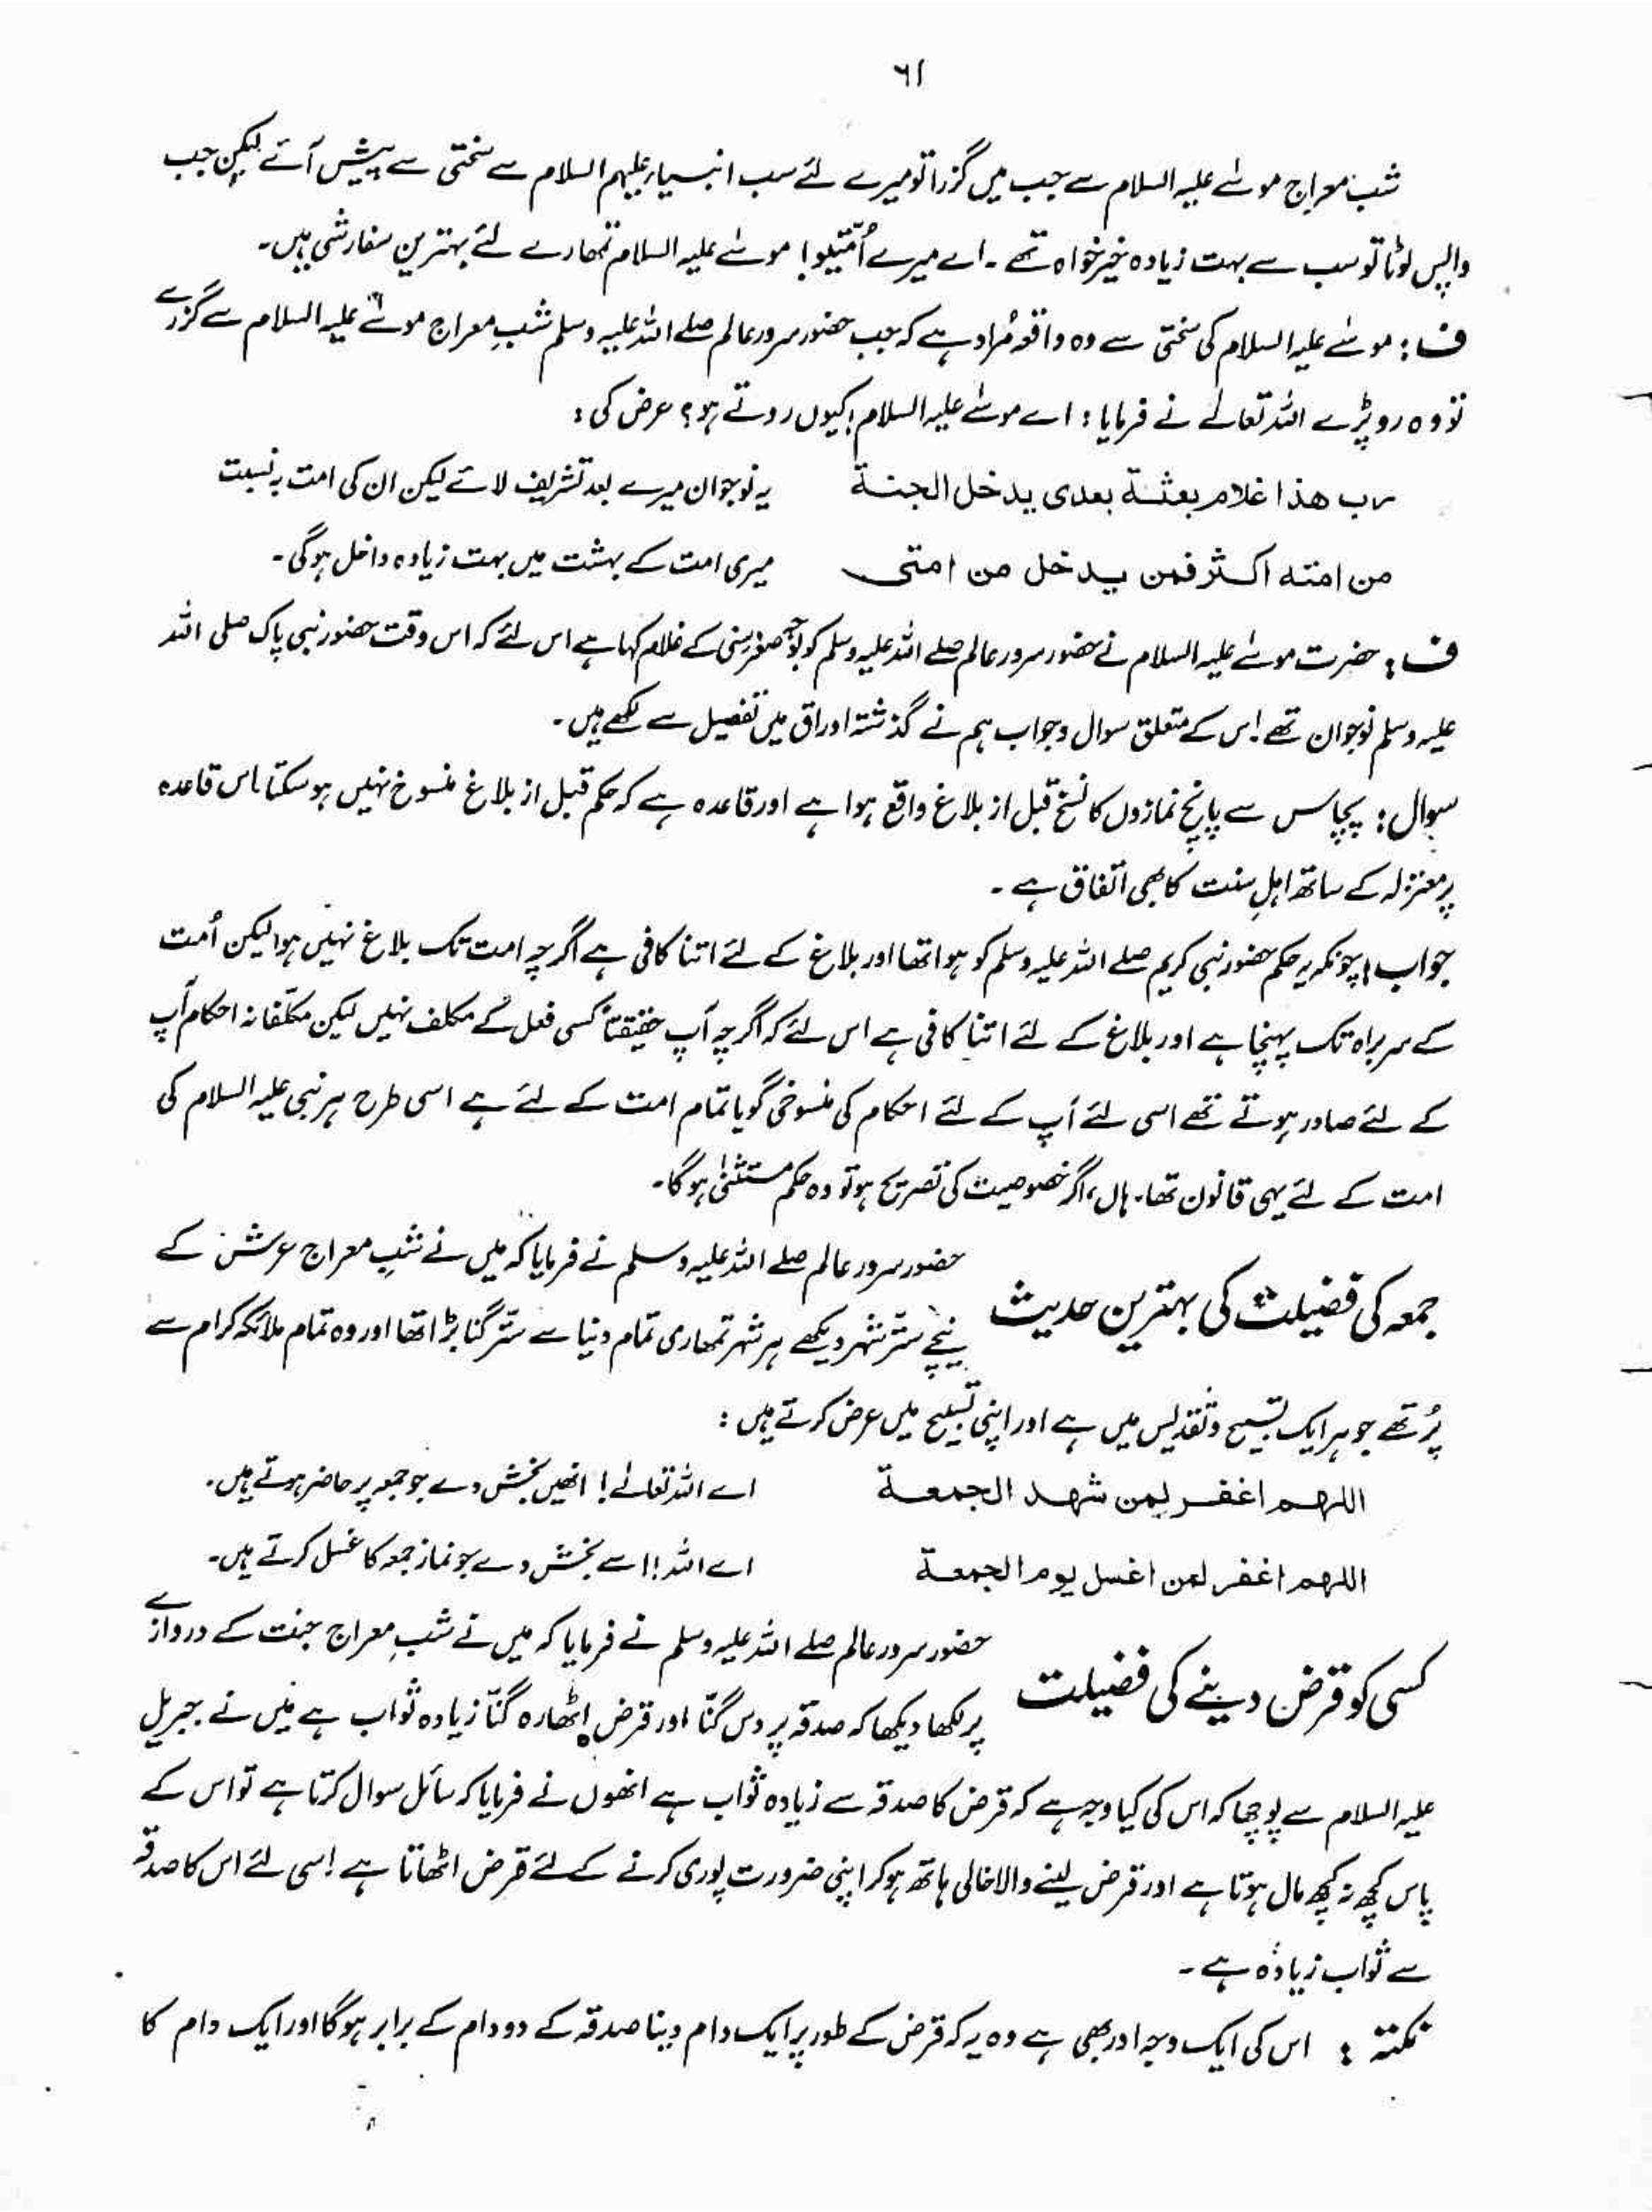 ٦١
شب معراج موسٰے علیہ السلام سے جب میں گزرا تو میرے لئے سب انبیاء علیہم السلام سے سختی سے پیش آئے لیکن جب
واپس لوٹا تو سب سے بہت زیادہ خیر خواہ تھے ۔ اے میرے اُمّتیو! موسٰے علیہ السلام تمہارے لئے بہترین سفارشی ہیں۔
ف : موسٰے علیہ السلام کی سختی سے وہ واقعہ مُراد ہے کہ جب حضور سرور عالم صلے اللہ علیہ وسلم شبِ معراج موسٰے علیہ السلام سے گزرے
تو وہ رو پڑے اللہ تعالےٰ نے فرمایا : اے موسٰے علیہ السلام! کیوں روتے ہو؟ عرض کی :
رب هذا غلام بعثة بعدی یدخل الجنة یہ نوجوان میرے بعد تشریف لائے لیکن ان کی امت بہ نسبت
من امته اکثر فمن یدخل من امتی میری امت کے بہشت میں بہت زیادہ داخل ہوگی ۔
ف : حضرت موسٰے علیہ السلام نے حضور سرور عالم صلے اللہ علیہ وسلم کو بوجہ صغر سنی کے غلام کہا ہے اس لئے کہ اس وقت حضور نبی پاک صلی اللہ
علیہ وسلم نوجوان تھے اِس کے متعلق سوال و جواب ہم نے گذشتہ اوراق میں تفصیل سے لکھے ہیں ۔
سوال : پچاس سے پانچ نمازوں کا نسخ قبل از بلاغ واقع ہوا ہے اور قاعدہ ہے کہ حکم قبل از بلاغ منسوخ نہیں ہو سکتا اس قاعدہ
پر معتزلہ کے ساتھ اہلِ سنت کا بھی اتفاق ہے ۔
جواب : چونکہ یہ حکم حضور نبی کریم صلے اللہ علیہ وسلم کو ہوا تھا اور بلاغ کے لئے اتنا کافی ہے اگرچہ امت تک بلاغ نہیں ہوا لیکن اُمت
کے سربراہ تک پہنچا ہے اور بلاغ کے لئے اتنا کافی ہے اس لئے کہ اگرچہ آپ حقیقتاً کسی فعل کے مکلف نہیں لیکن مکلّفانہ احکام آپ
کے لئے صادر ہوتے تھے اسی لئے آپ کے لئے احکام کی منسوخی گویا تمام امت کے لئے ہے اسی طرح ہر نبی علیہ السلام کی
امت کے لئے یہی قانون تھا۔ ہاں، اگر خصوصیت کی تصریح ہو تو وہ حکم مستثنیٰ ہوگا۔
جمعہ کی فضیلت کی بہترین حدیث
حضور سرور عالم صلے اللہ علیہ وسلم نے فرمایا کہ میں نے شبِ معراج عرش کے
نیچے ستّر شہر دیکھے ہر شہر تمھاری تمام دنیا سے ستّر گنا بڑا تھا اور وہ تمام ملائکہ کرام سے
پُر تھے جو ہر ایک تسبیح و تقدیس میں ہے اور اپنی تسبیح میں عرض کرتے ہیں :
اللهم اغفر لمن شهد الجمعة اے اللہ تعالےٰ! انھیں بخش دے جو جمعہ پر حاضر ہوتے ہیں۔
اللهم اغفر لمن اغسل یوم الجمعة اے اللہ! اسے بخش دے جو نماز جمعہ کا غسل کرتے ہیں۔
کسی کو قرض دینے کی فضیلت
حضور سرور عالم صلے اللہ علیہ وسلم نے فرمایا کہ میں نے شبِ معراج جنت کے دروازے
پر لکھا دیکھا کہ صدقہ پر دس گُنّا اور قرض اٹھارہ گُنّا زیادہ ثواب ہے میں نے جبریل
علیہ السلام سے پوچھا کہ اس کی کیا وجہ ہے کہ قرض کا صدقہ سے زیادہ ثواب ہے انھوں نے فرمایا کہ سائل سوال کرتا ہے تو اس کے
پاس کچھ نہ کچھ مال ہوتا ہے اور قرض لینے والا خالی ہاتھ ہو کر اپنی ضرورت پوری کرنے کے لئے قرض اٹھاتا ہے اِسی لئے اس کا صدقہ
سے ثواب زیادہ ہے ۔
نکتہ : اس کی ایک وجہ اور بھی ہے وہ یہ کہ قرض کے طور پر ایک دام دینا صدقہ کے دو دام کے برابر ہوگا اور ایک دام کا